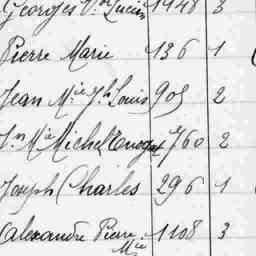 Georges V.or Lucien 1948 3
Pierre Marie 136 1
Jean M.ie J.h Louis 905 2
J.n M.ie Michel 760 2
Joseph Charles 296 1
Alexandre Pierre M.ie 1108 3